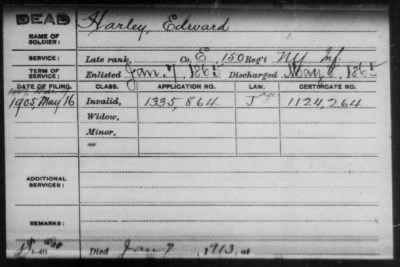 DEAD
NAME OF SOLDIER: Harley, Edward
SERVICE: Late rank, Co. E, 150 Reg't NY Inf.
TERM OF SERVICE: Enlisted Jan. 7, 1865 Discharged May 8, 1865
DATE OF FILING. CLASS. APPLICATION NO. LAW. CERTIFICATE NO.
1905, May 16 Invalid, 1335,864 J 1124,264
Widow,
Minor,
ADDITIONAL SERVICES:
REMARKS:
Died Jan 7, 1913, at